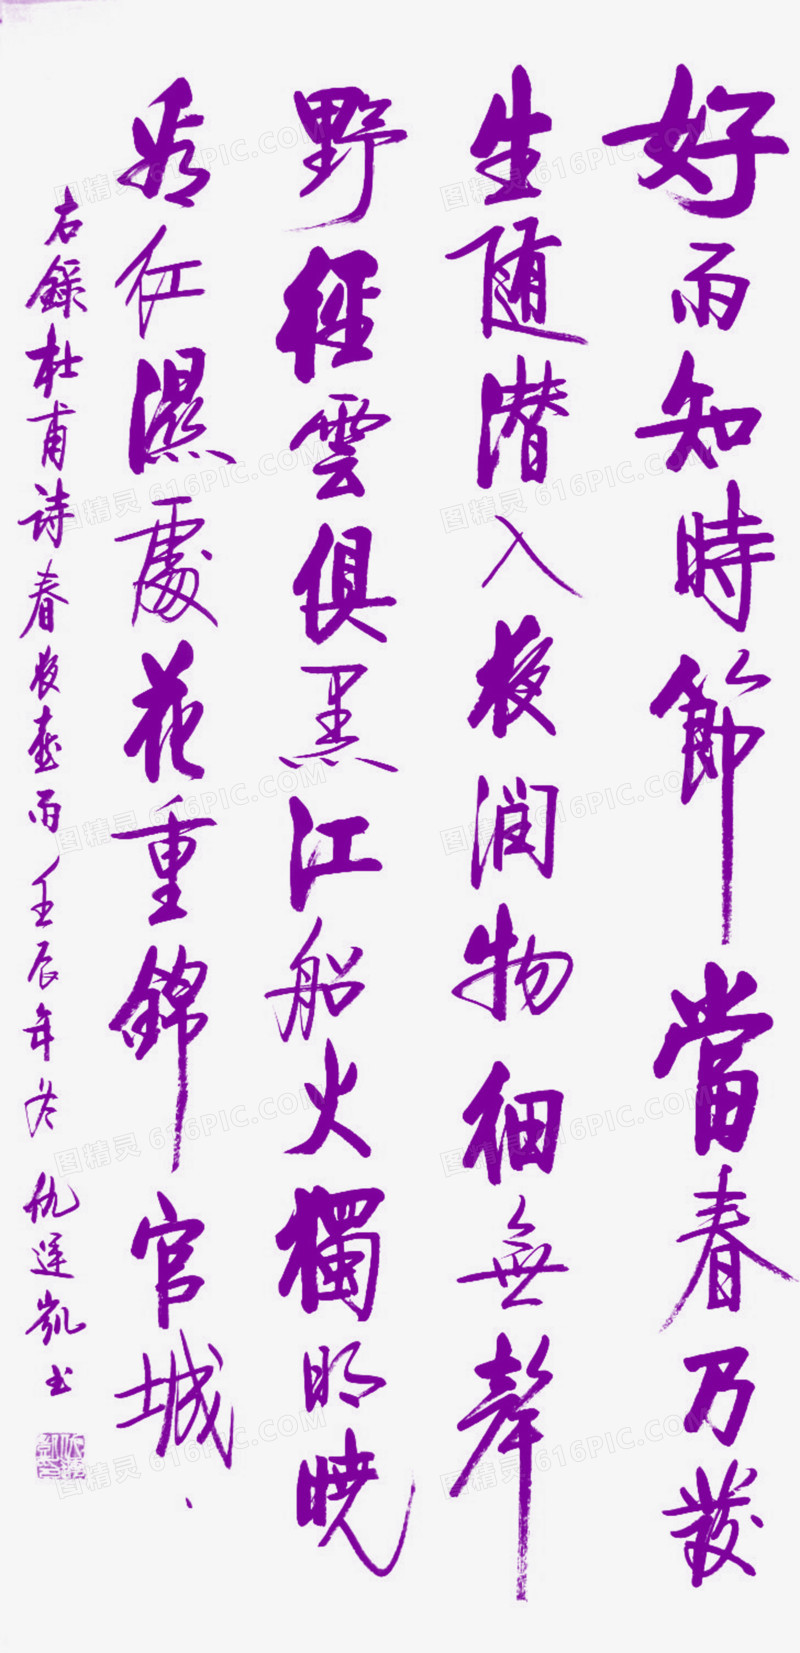 好雨知時節當春乃發
生随潜入夜润物细無聲
野徑雲俱黑江船火獨明曉
看红濕處花重錦官城
右錄杜甫诗春夜喜雨壬辰年冬仇运凯书
图精灵 616PIC.COM